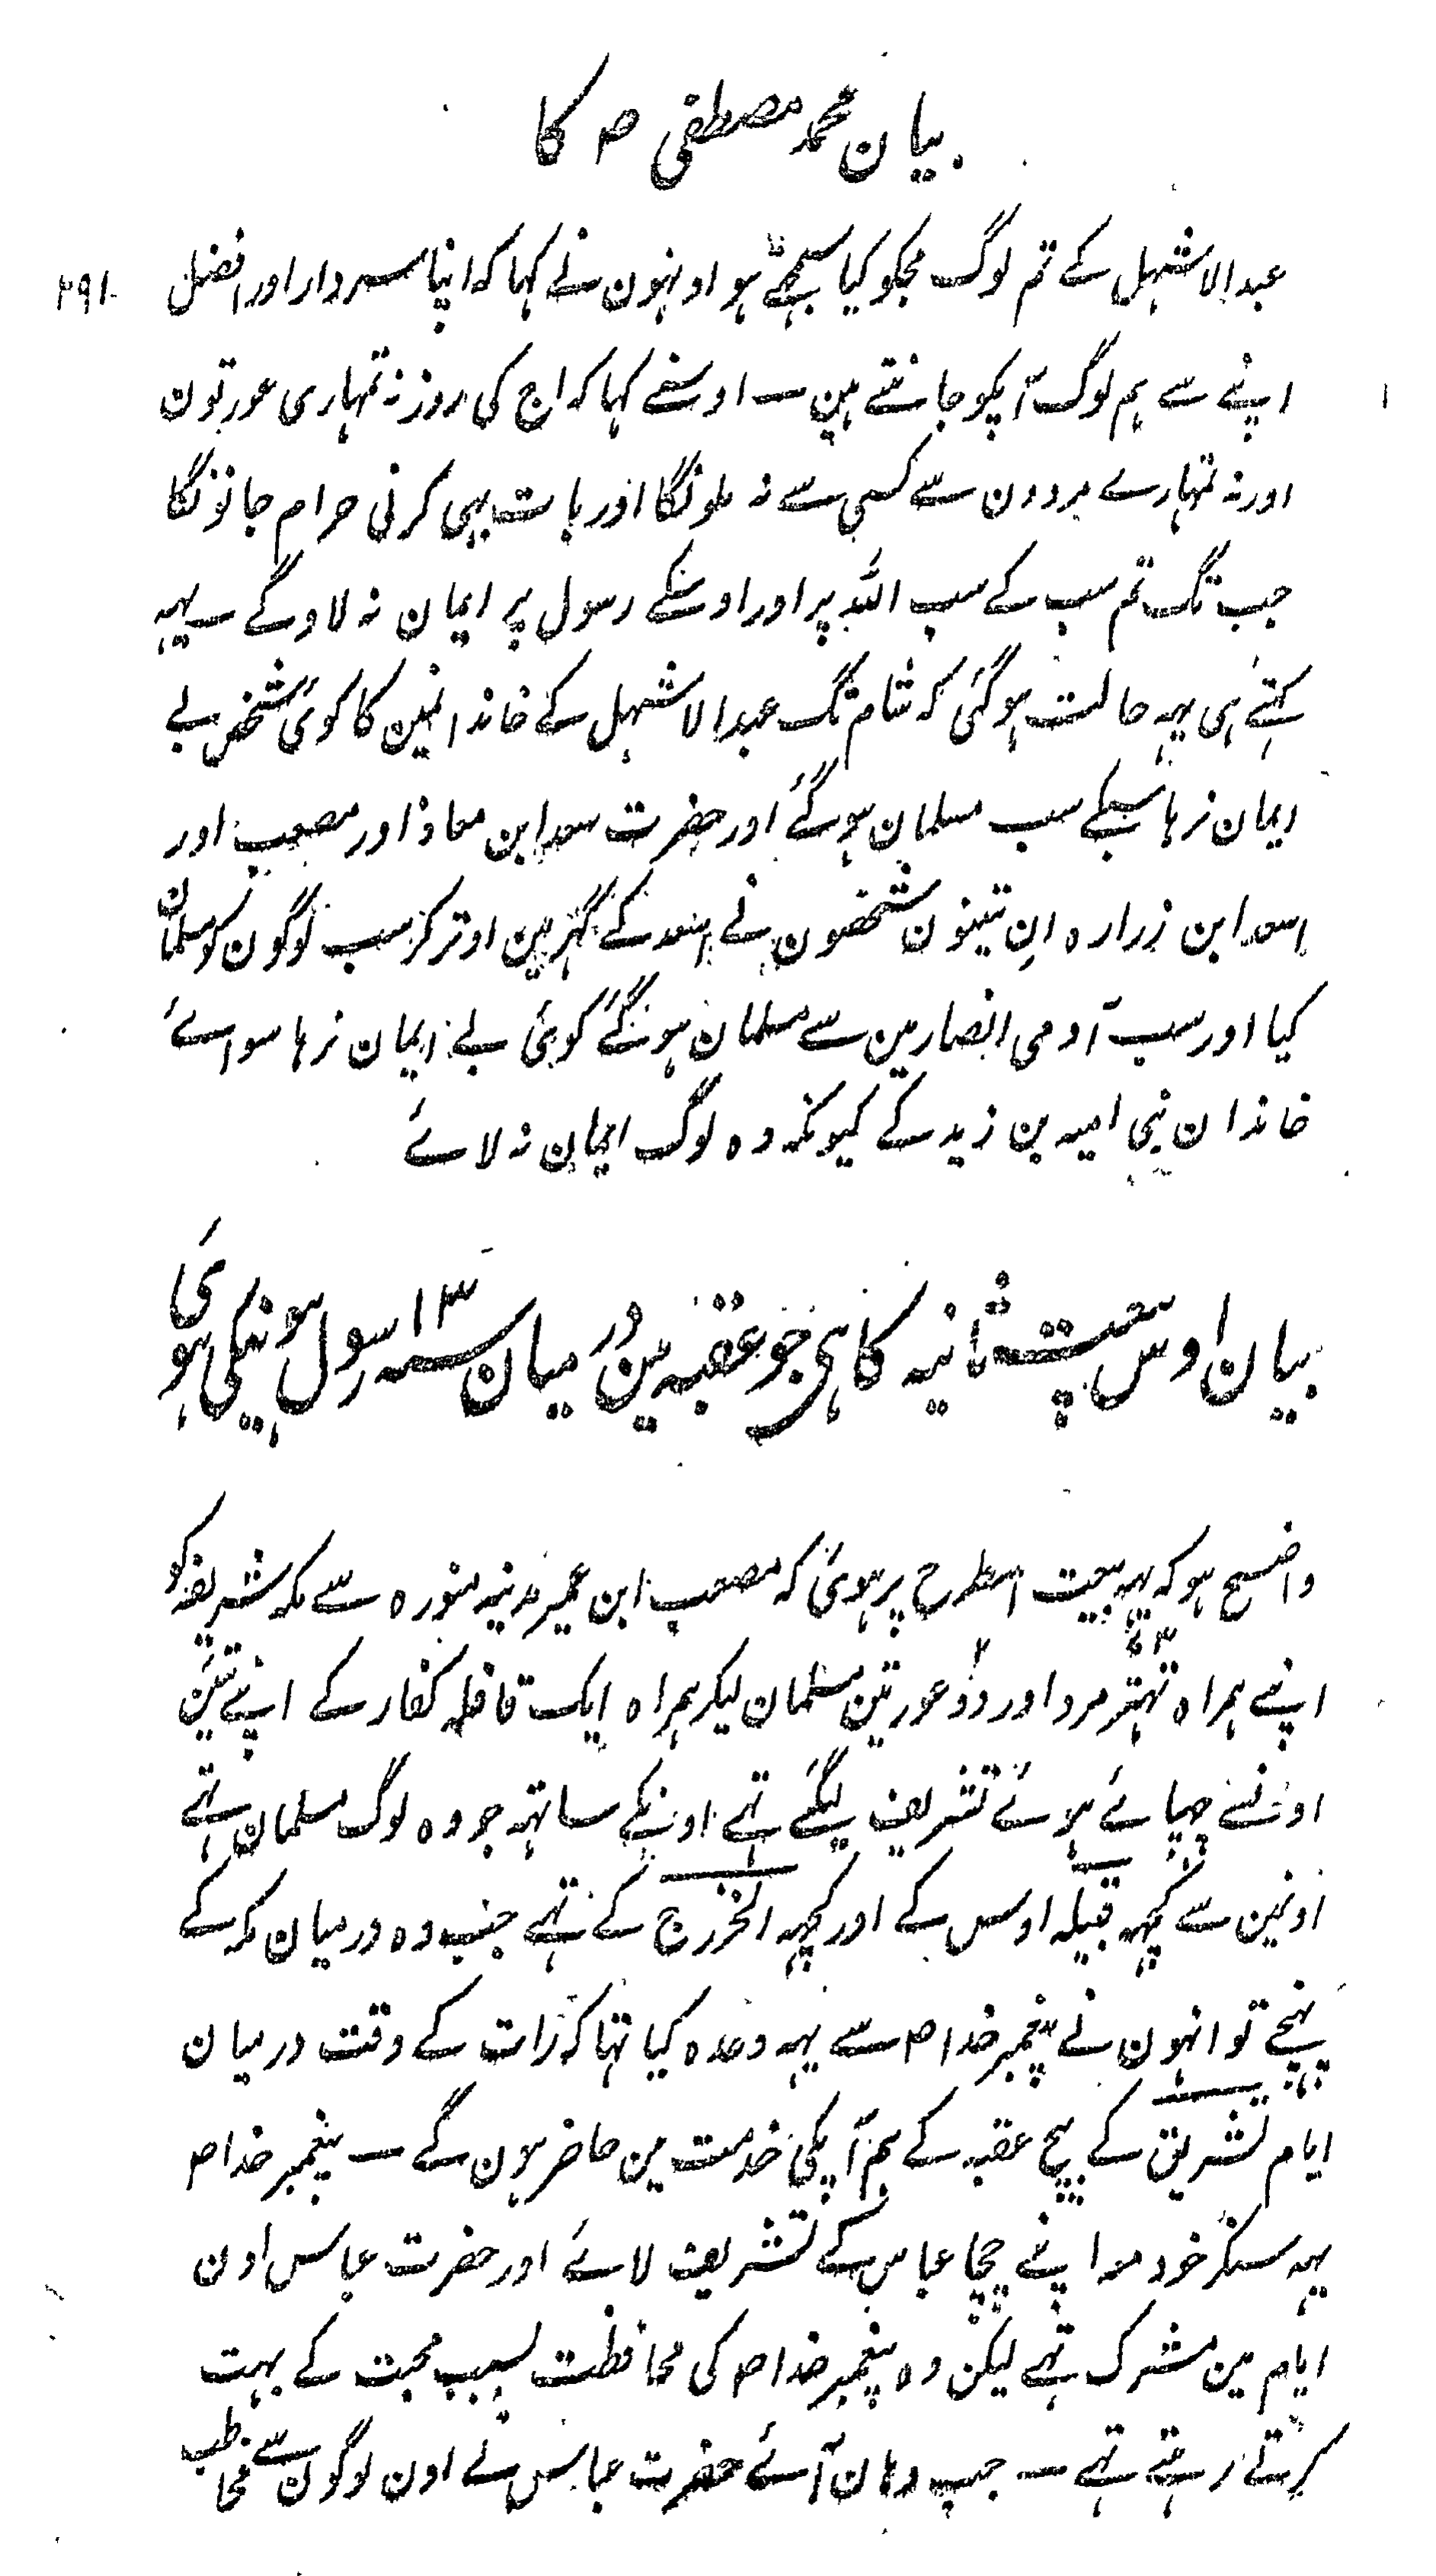 بیان محمد مصطفی ص کا
عبدالاشہل کے تم لوگ مجکو کیا سمجہتے ہو اونہون نے کہا کہ اپنا سردار اور افضل ۲۹۱
اپنے سے ہم لوگ آپکو جانتے ہین — اوسنے کہا کہ اج کی روز نہ تمہاری عورتون
اور نہ تمہارے مردون سے کسی سے نہ ملونگا اور بات بہی کرنی حرام جانونگا
جب تک تم سب کے سب اللہ پر اور اوسکے رسول پر ایمان نہ لاوگے یہہ
کہتے ہی یہہ حالت ہوگئی کہ شام تک عبدالاشہل کے خاندانمین کا کوئی شخص بے
ایمان نرہا سبکے سب مسلمان ہوگئے اور حضرت سعد ابن معاذ اور مصعب اور
اسعد ابن زرارہ اِن تینون شخصون نے اسعد کے گہر مین اوتر کر سب لوگون کو مسلمان
کیا اور سب آدمی انصار مین سے مسلمان ہوگئے کوئی بے ایمان نرہا سوائے
خاندان بنی امیہ بن زید کے کیونکہ وہ لوگ ایمان نہ لائے
بیان اوس بیعت ثانیہ کا ہی جو عقبہ مین درمیان سنہ ۱۳ رسول ہونیکی ہوئی
واضح ہو کہ یہہ بیعت اسطرح پر ہوئی کہ مصعب ابن عمیر مدینہ منورہ سے مکہ شریفہ کو
اپنے ہمراہ تہتر ۷۳ مرد اور دو ۲ عورتین مسلمان لیکر ہمراہ ایک قافلہ کفار کے اپنے تئین
اونسے چہپائے ہوئے تشریف لیگئے تہے اونکے ساتہہ جو وہ لوگ مسلمان تہے
اونمین سے کچہہ قبیلہ اوس کے اور کچہہ الخزرج کے تہے جب وہ درمیان مکہ کے
پہنچے تو انہون نے پیغمبر خدا ص سے یہہ وعدہ کیا تہا کہ رات کے وقت درمیان
ایام تشریق کے بیچ عقبہ کے ہم آپکی خدمت مین حاضر ہون گے — پیغمبر خدا ص
یہہ سنکر خود معہ اپنے چچا عباس کے تشریف لائے اور حضرت عباس اون
ایام مین مشرک تہے لیکن وہ پیغمبر خدا ص کی محافظت بسبب محبت کے بہت
کرتے رہتے تہے — جب وہان آئے حضرت عباس نے اون لوگون سے مخاطب